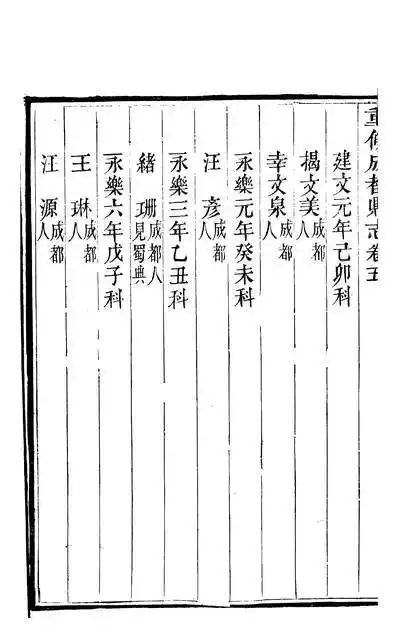 重修成都縣志卷五
建文元年己卯科
揭文美成都人
幸文泉成都人
永樂元年癸未科
汪彥成都人
永樂三年乙丑科
緒珊成都人見蜀典
永樂六年戊子科
王琳成都人
汪源成都人